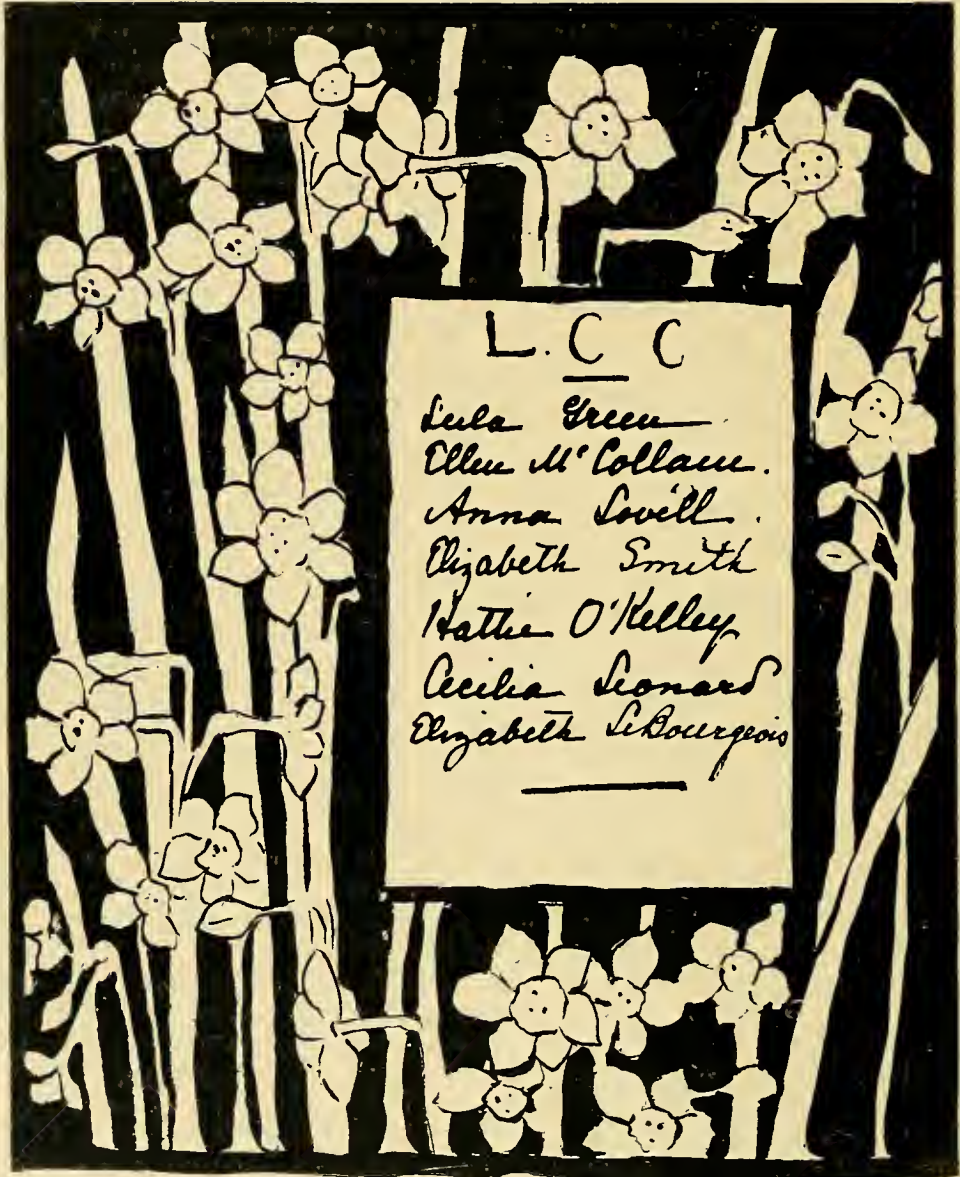 L. C C
Lula Green
Ellen McCollam.
Anna Lovéll.
Elizabeth Smith
Hattie O'Kelley
Cecilia Leonard
Elizabeth LeBourgeois